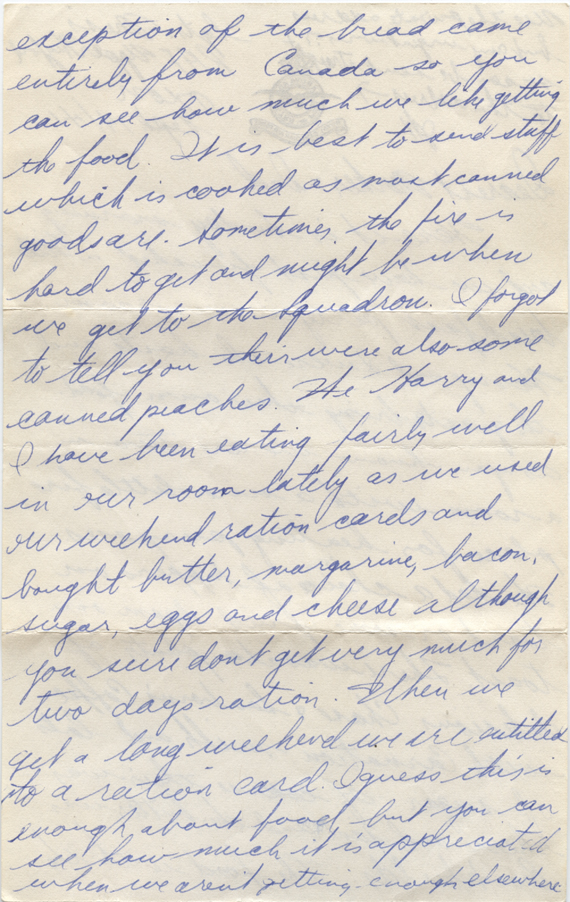 exception of the bread came
entirely from Canada so you
can see how much we like getting
the food. It is best to send stuff
which is cooked as most canned
goods are. Sometimes the fire is
hard to get and might be when
we get to the squadron. I forgot
to tell you their were also some
canned peaches. We Harry and
I have been eating fairly well
in our room lately as we used
our weekend ration cards and
bought butter, margarine, bacon,
sugar, eggs and cheese although
you sure dont get very much for
two days ration. When we
get a long weekend we are entitled
to a ration card. I guess this is
enough about food but you can
see how much it is appreciated
when we aren't getting enough elsewhere